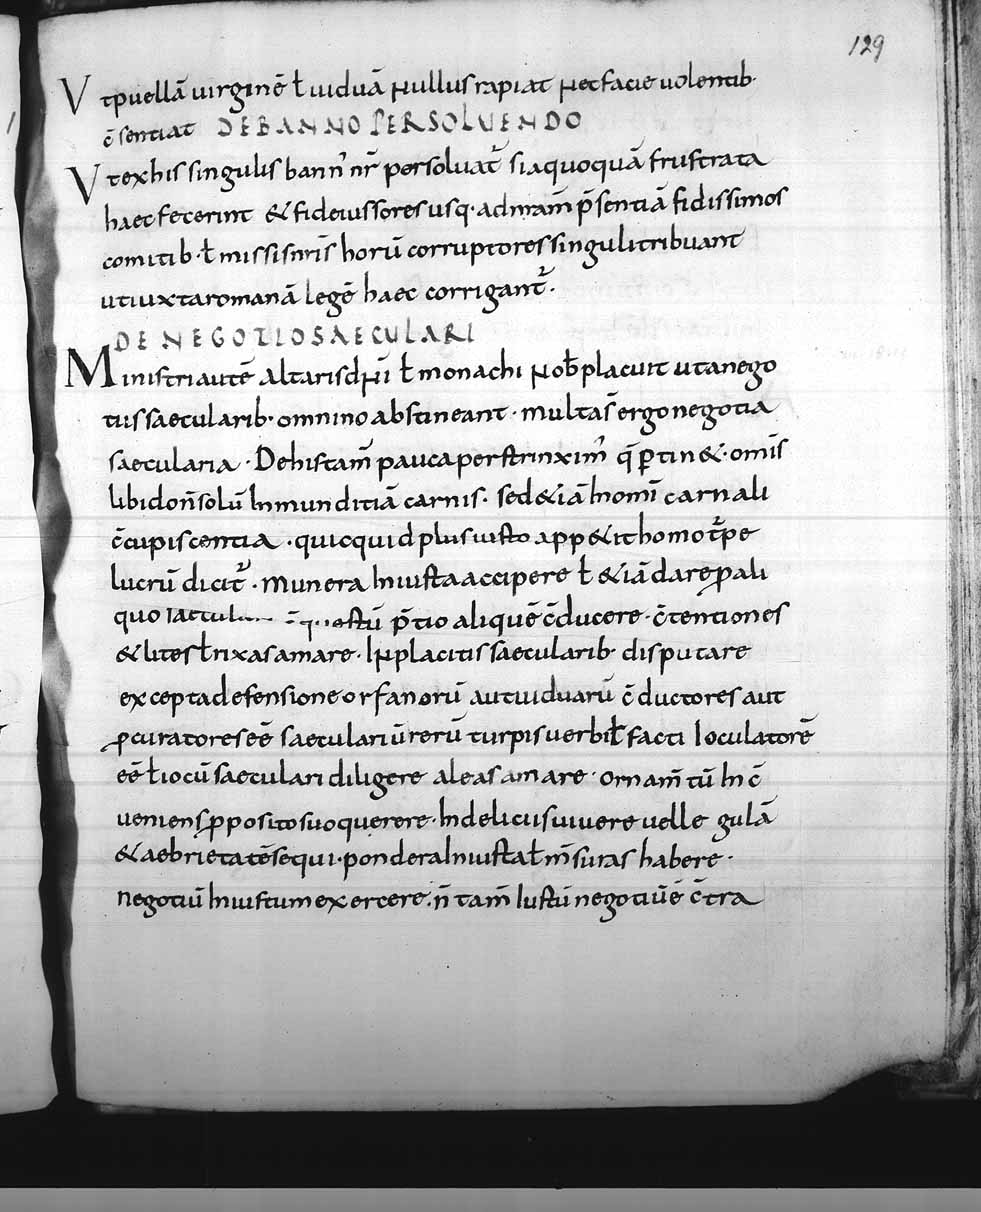 129
Vt puellā uirginē ł uiduā nullus rapiat nec facie uolentib·
c̄sentiat DE BANNO PERSOLUENDO
Vt ex his singulis bann̉ nr̄ persoluat᷑ si a quoquā frustrata
haec fecerint & fideiussores usq· ad nr̄am p̄sentiā fidissimos
comitib· ł missis nr̄is horū corruptores singuli tribuant
ut iuxta romanā legē haec corrigant᷑·
DE NEGOTIO SAECULARI
Ministri autē altaris dn̄i ł monachi nob̄ placuit ut a nego
tiis saecularib· omnino abstineant · multa s̄ ergo negotia
saecularia · De his tam̄ pauca perstrinxim̉ q̄ ꝑtin& · om̄is
libido n̄ solū Inmunditiā carnis · sed &iā In om̄i carnali
c̄cupiscentia · quicquid plus iusto app&it homo t᷑pe
lucrū dicit᷑ · Munera Iniusta accipere ł &iā dare ꝓ ali
quo saecula q̄stū p̄tio aliquē c̄ducere · c̄tentiones
& lites ł rixas amare · In placitis saecularib· disputare
excepta defensione orfanorū aut uiduarū c̄ductores aut
ꝓcuratores eē saeculariū rerū turpis uerbi ł facti Ioculatorē
eē ł iocū saeculari diligere aleas amare · ornam̄tū In c̄
ueniens ꝓposito suo querere · In deliciis uiuere uelle gulā
& aebrietatē sequi · pondera Iniusta ł m̄suras habere ·
negotiū Iniustum exercere · n̄ tam̄ Iustū negotiū ē c̄tra